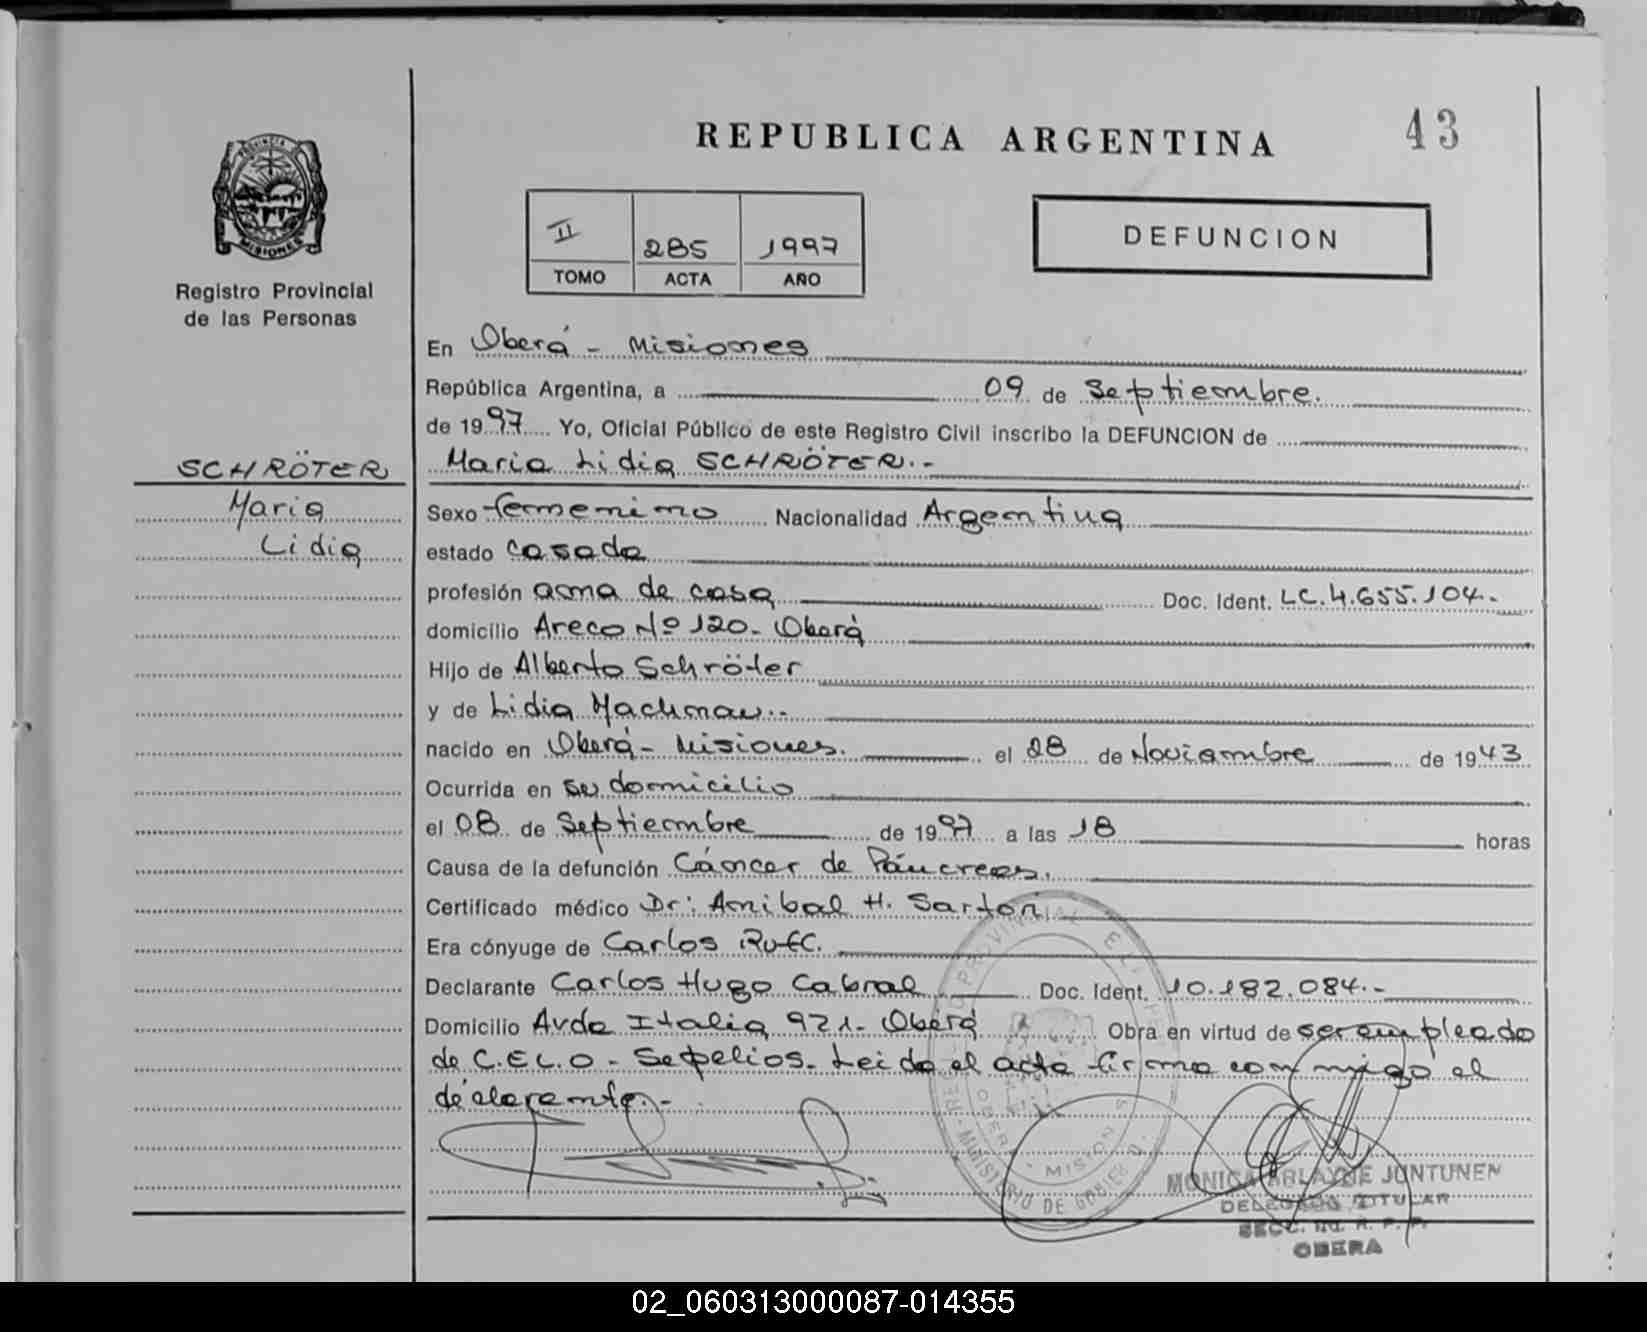 REPUBLICA ARGENTINA
43
PROVINCIA
MISIONES
Registro Provincial
de las Personas
II 285 1997
TOMO ACTA AÑO
DEFUNCION
En Oberá - Misiones
República Argentina, a 09 de Septiembre.
de 1997 Yo, Oficial Público de este Registro Civil inscribo la DEFUNCION de
Maria Lidia SCHRÖTER.-
SCHRÖTER
Maria
Lidia
Sexo femenino Nacionalidad Argentina
estado casada
profesión ama de casa Doc. Ident. LC.4.655.104.-
domicilio Areco Nº 120. Oberá
Hijo de Alberto Schröter
y de Lidia
nacido en Oberá - Misiones. el 28 de Noviembre de 1943
Ocurrida en su domicilio
el 08 de Septiembre de 1997 a las 18 horas
Causa de la defunción Cáncer de Páncreas.
Certificado médico Dr: Anibal H. Sartori
Era cónyuge de Carlos
Declarante Carlos Hugo Cabral Doc. Ident. 10.182.084.-
Domicilio Avda Italia 921. Oberá Obra en virtud de ser empleado
de C.E.L.O - Sepelios. Leida el acta firma conmigo el
declarante.-
MINISTERIO DE GOBIERNO
MONICA JUNTUNEN
DELEGADA TITULAR
SECC. R. P. P.
OBERA
02_060313000087-014355